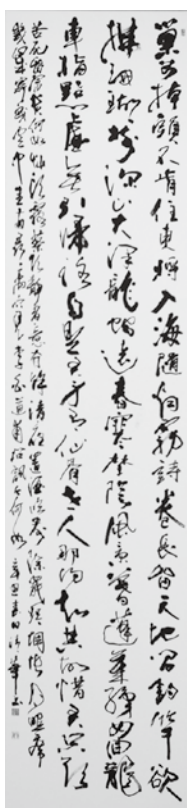 巢父掉頭不肯住東將入海隨煙霧詩卷長留天地間釣竿欲
拂珊瑚樹深山大澤龍蛇遠春寒野陰風景暮蓬萊織女回龍
車指點虛無引歸路自是君身有仙骨世人那得知其故惜君只欲
苦死留富貴何如草頭露蔡侯靜者意有餘清夜置酒臨前除罷琴惆悵月照席
幾歲寄我空中書南尋禹穴見李白道甫問訊今何如 春日